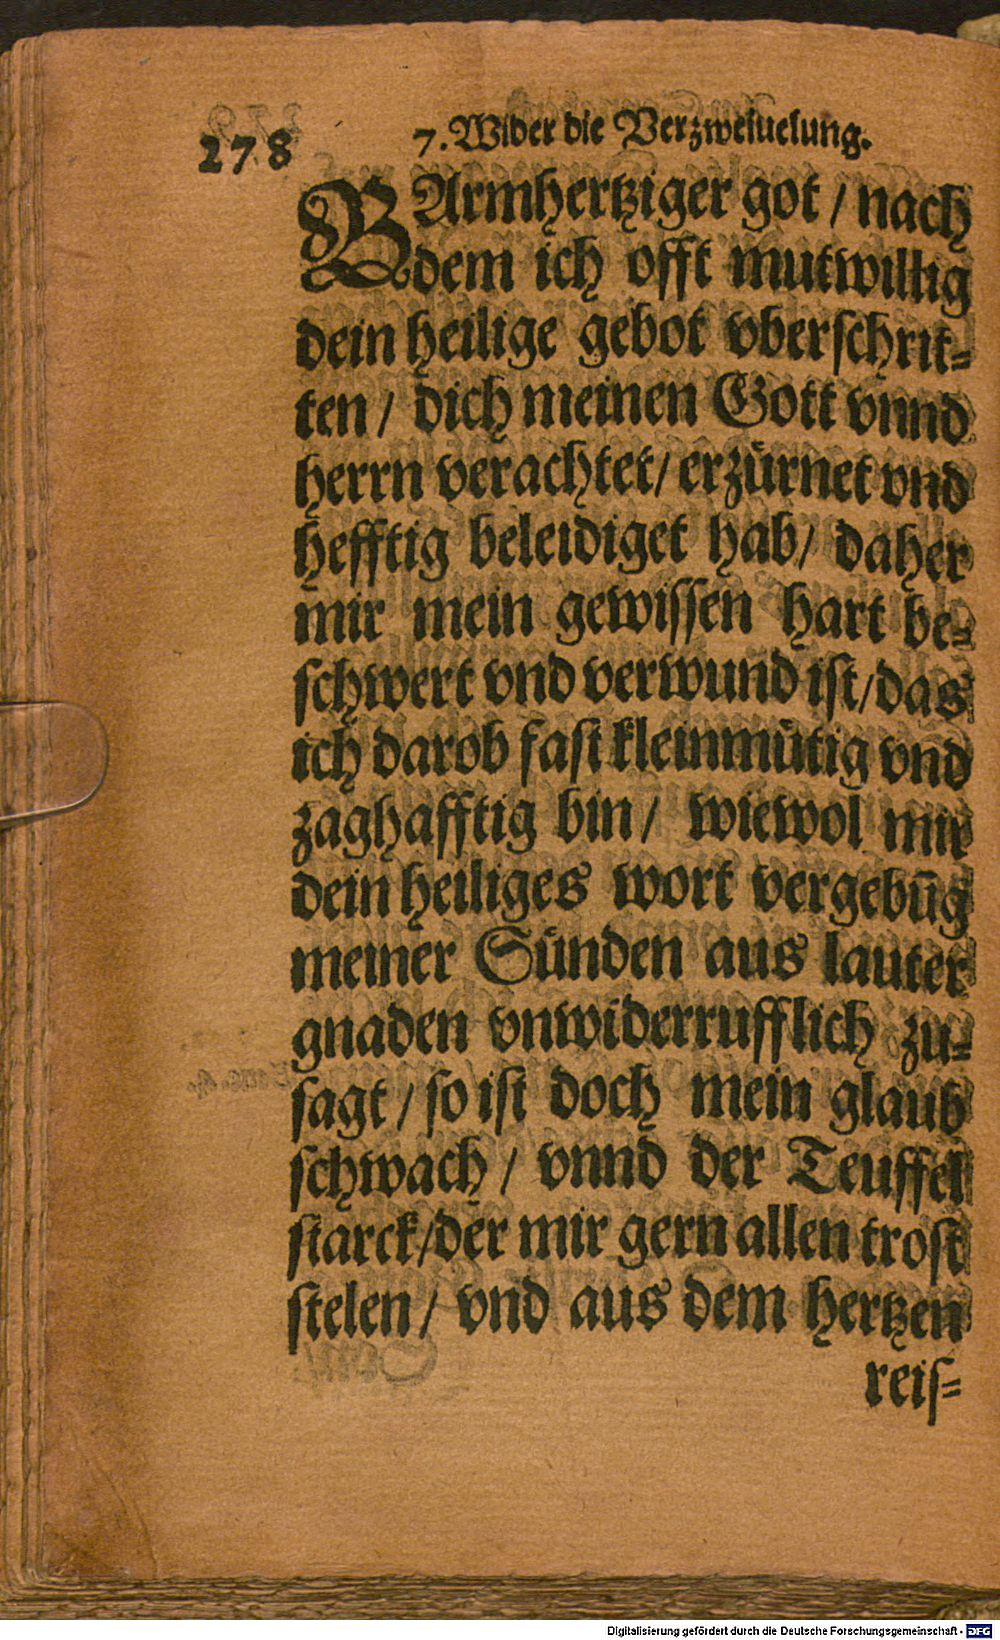 278
7. Wider die Verzweiuelung.
BArmhertziger got / nach
dem ich offt mutwillig
dein heilige gebot vberschrit⸗
ten / dich meinen Gott vnnd
herrn verachtet / erzürnet vnd
hefftig beleidiget hab / daher
mir mein gewissen hart be⸗
schwert vnd verwund ist / das
ich darob fast kleinmütig vnd
zaghafftig bin / wiewol mir
dein heiliges wort vergebūg
meiner Sünden aus lauter
gnaden vnwiderrufflich zu⸗
sagt / so ist doch mein glaub
schwach / vnnd der Teuffel
starck / der mir gern allen trost
stelen / vnd aus dem hertzen
reis⸗
Digitalisierung gefördert durch die Deutsche Forschungsgemeinschaft - DFG